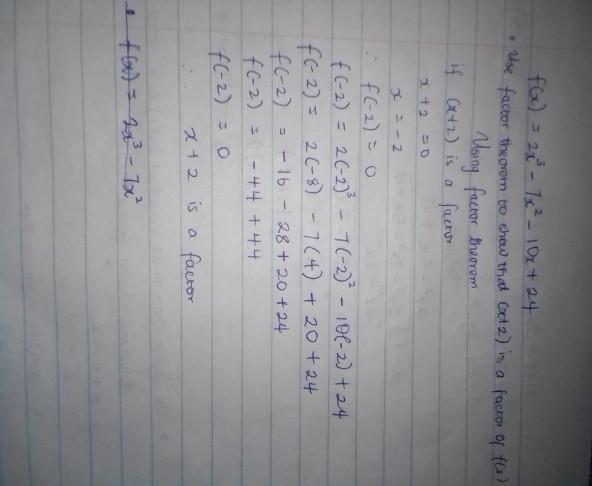 f(x) = 2x³ - 7x² - 10x + 24
• Use factor theorem to show that (x+2) is a factor of f(x)
Using factor theorem
if (x+2) is a factor
x + 2 = 0
x = -2
∴ f(-2) = 0
f(-2) = 2(-2)³ - 7(-2)² - 10(-2) + 24
f(-2) = 2(-8) - 7(4) + 20 + 24
f(-2) = -16 - 28 + 20 + 24
f(-2) = -44 + 44
f(-2) = 0
∴ x + 2 is a factor
f(x) = 2x³ - 7x²